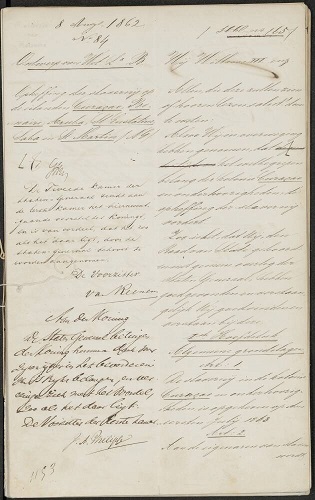 8 Aug. 1862
No 84
Ontwerp van Wet La B
Opheffing der slavernij op
de eilanden Curaçao, Bo-
naire, Aruba, St Eustatius,
Saba en St Martin (N.G.)
De Tweede Kamer der
Staten-Generaal zendt aan
de Eerste Kamer het
voorstel des Konings,
en is van oordeel, dat het zoo
als het daar ligt, door de
Staten-Generaal behoort te
worden aangenomen.
De Voorzitter
van Reenen
Aan den Koning
De Staten Generaal betuigen
den Koning hunnen dank voor
Zijnen ijver in het bevorderen
van 's Rijks belangen, en ver-
eenigen zich met het Voorstel,
zoo als het daar ligt.
De Voorzitter der Eerste Kamer
J. A. Philipse
Wij Willem III enz
Allen die deze zullen zien
of hooren lezen, saluut! doen
te weten
Alzoo Wij in overweging
hebben genomen, dat
het
belang der kolonie Curaçao
en onderhoorigheden de
opheffing der slavernij
vordert
Zoo is het dat Wij, den
Raad van State gehoord,
en met gemeen overleg der
Staten Generaal, hebben
goedgevonden en verstaan
gelijk Wij goedvinden en
verstaan bij deze:
1e Hoofdstuk
Algemeene grondslagen
Art. 1
De slavernij in de kolonie
Curaçao en onderhoorig-
heden is opgeheven op den
1 July 1863
Art. 2
Aan de eigenaren van slaven
wordt